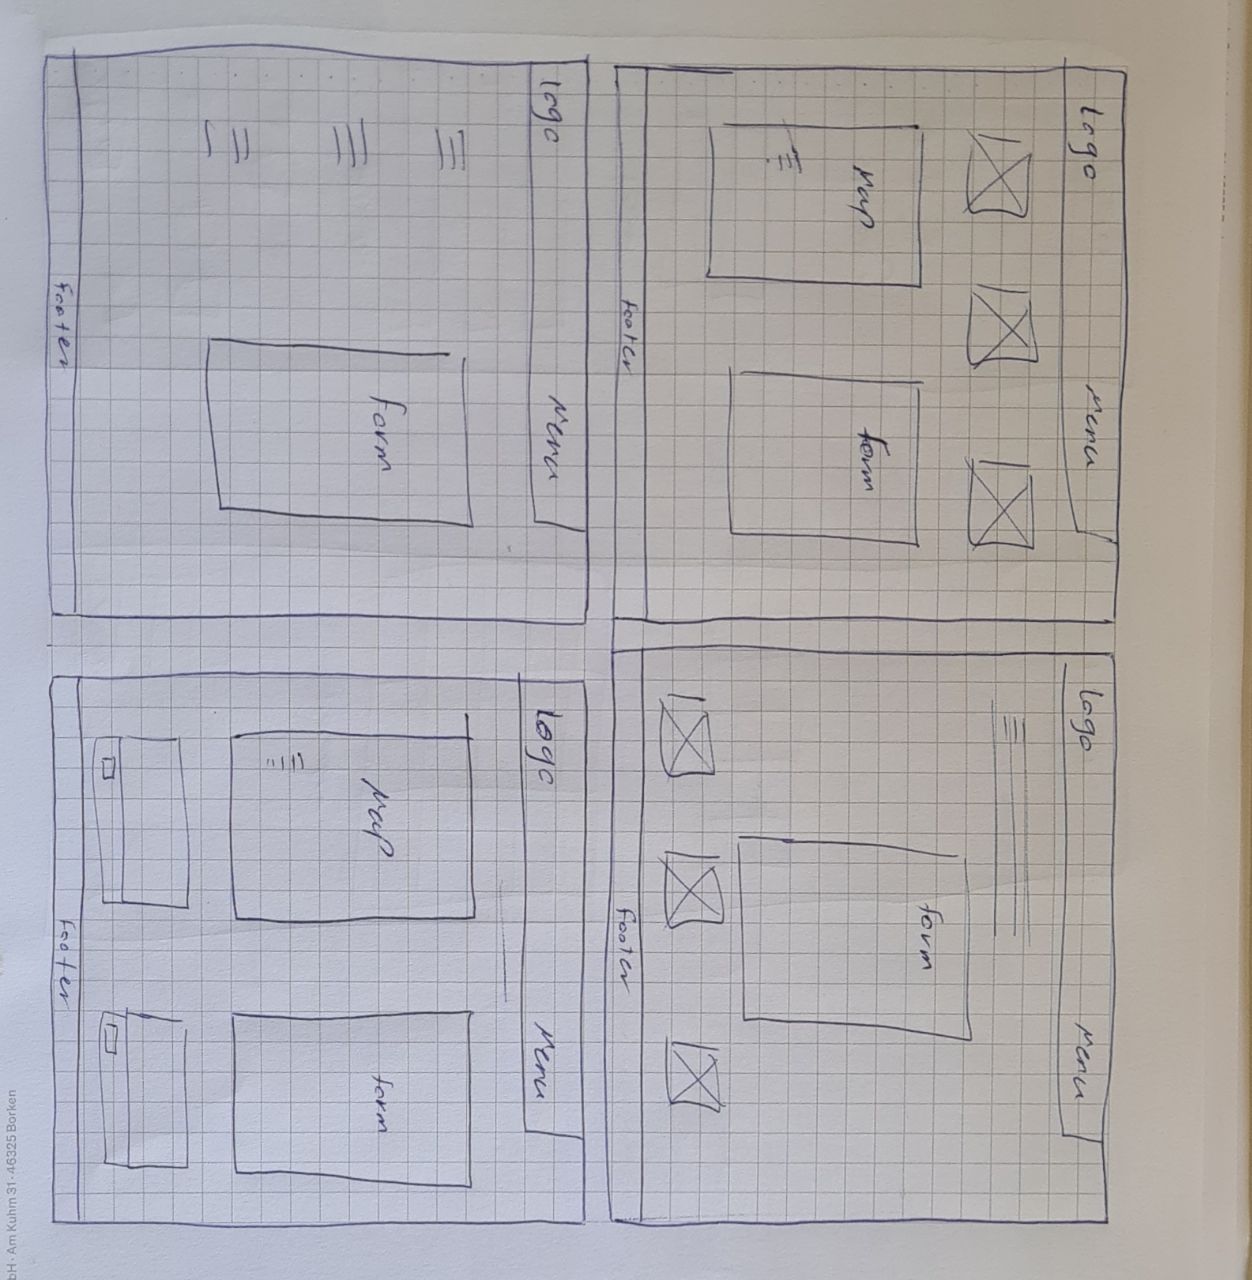 Logo Menu
Map form
Footer
Logo Menu
form
Footer
Logo Menu
Form
Footer
Logo Menu
Map form
Footer
bH · Am Kuhm 31 · 46325 Borken